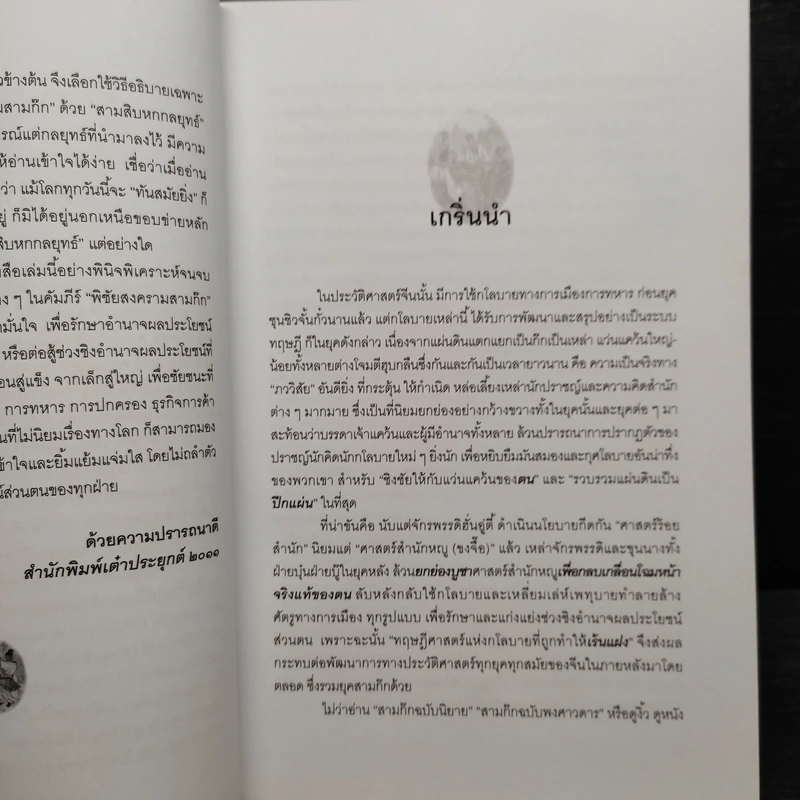 วข้างต้น จึงเลือกใช้วิธีอธิบายเฉพาะ
มสามก๊ก" ด้วย "สามสิบหกกลยุทธ์"
รณ์แต่กลยุทธ์ที่นำมาลงไว้ มีความ
ห้อ่านเข้าใจได้ง่าย เชื่อว่าเมื่ออ่าน
ว่า แม้โลกทุกวันนี้จะ "ทันสมัยยิ่ง" ก็
ยู่ ก็มิได้อยู่นอกเหนือขอบข่ายหลัก
สิบหกกลยุทธ์" แต่อย่างใด
งสือเล่มนี้อย่างพินิจพิเคราะห์จนจบ
าง ๆ ในคัมภีร์ "พิชัยสงครามสามก๊ก"
ามั่นใจ เพื่อรักษาอำนาจผลประโยชน์
หรือต่อสู้ช่วงชิงอำนาจผลประโยชน์ที่
อนสู่แข็ง จากเล็กสู่ใหญ่ เพื่อชัยชนะที่
การทหาร การปกครอง ธุรกิจการค้า
นที่ไม่นิยมเรื่องทางโลก ก็สามารถมอง
ข้าใจและยิ้มแย้มแจ่มใส โดยไม่ถลำตัว
น์ส่วนตนของทุกฝ่าย
ด้วยความปรารถนาดี
สำนักพิมพ์เต๋าประยุกต์ ๒๐๑๑
เกริ่นนำ
ในประวัติศาสตร์จีนนั้น มีการใช้กโลบายทางการเมืองการทหาร ก่อนยุค
ชุนชิวจั้นกั๋วนานแล้ว แต่กโลบายเหล่านี้ ได้รับการพัฒนาและสรุปอย่างเป็นระบบ
ทฤษฎี ก็ในยุคดังกล่าว เนื่องจากแผ่นดินแตกแยกเป็นก๊กเป็นเหล่า แว่นแคว้นใหญ่-
น้อยทั้งหลายต่างโจมตีฮุบกลืนซึ่งกันและกันเป็นเวลายาวนาน คือ ความเป็นจริงทาง
"ภาววิสัย" อันดียิ่ง ที่กระตุ้น ให้กำเนิด หล่อเลี้ยงเหล่านักปราชญ์และความคิดสำนัก
ต่าง ๆ มากมาย ซึ่งเป็นที่นิยมยกย่องอย่างกว้างขวางทั้งในยุคนั้นและยุคต่อ ๆ มา
สะท้อนว่าบรรดาเจ้าแคว้นและผู้มีอำนาจทั้งหลาย ล้วนปรารถนาการปรากฏตัวของ
ปราชญ์นักคิดนักกโลบายใหม่ ๆ ยิ่งนัก เพื่อหยิบยืมมันสมองและกุศโลบายอันน่าทึ่ง
ของพวกเขา สำหรับ "ชิงชัยให้กับแว่นแคว้นของตน" และ "รวบรวมแผ่นดินเป็น
ปึกแผ่น" ในที่สุด
ที่น่าขันคือ นับแต่จักรพรรดิฮั่นอู่ตี้ ดำเนินนโยบายกีดกัน "ศาสตร์ร้อย
สำนัก" นิยมแต่ "ศาสตร์สำนักหญู (ขงจื๊อ)" แล้ว เหล่าจักรพรรดิและขุนนางทั้ง
ฝ่ายบุ๋นฝ่ายบู๊ในยุคหลัง ล้วนยกย่องบูชาศาสตร์สำนักหญูเพื่อกลบเกลื่อนโฉมหน้า
จริงแท้ของตน ลับหลังกลับใช้กโลบายและเหลี่ยมเล่ห์เพทุบายทำลายล้าง
ศัตรูทางการเมือง ทุกรูปแบบ เพื่อรักษาและแก่งแย่งช่วงชิงอำนาจผลประโยชน์
ส่วนตน เพราะฉะนั้น "ทฤษฎีศาสตร์แห่งกโลบายที่ถูกทำให้เร้นแฝง" จึงส่งผล
กระทบต่อพัฒนาการทางประวัติศาสตร์ทุกยุคทุกสมัยของจีนในภายหลังมาโดย
ตลอด ซึ่งรวมยุคสามก๊กด้วย
ไม่ว่าอ่าน "สามก๊กฉบับนิยาย" "สามก๊กฉบับพงศาวดาร" หรือดูงิ้ว ดูหนัง